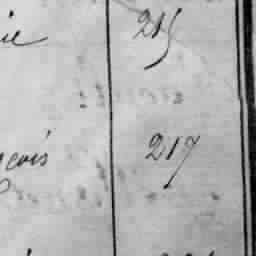 ie 215
çois 217